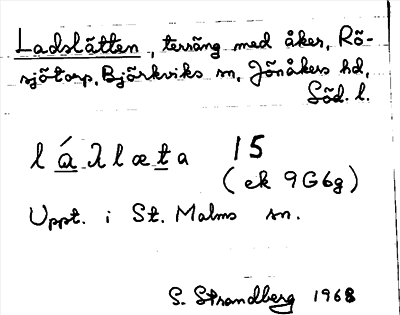 Ladslätten, terräng med åker, Rö-
sjötorp, Björkviks sn, Jönåkers hd,
Söd. l.
l á λ l æ t a 15
(ek 9G6g)
Uppt. i St. Malms sn.
S. Strandberg 1968